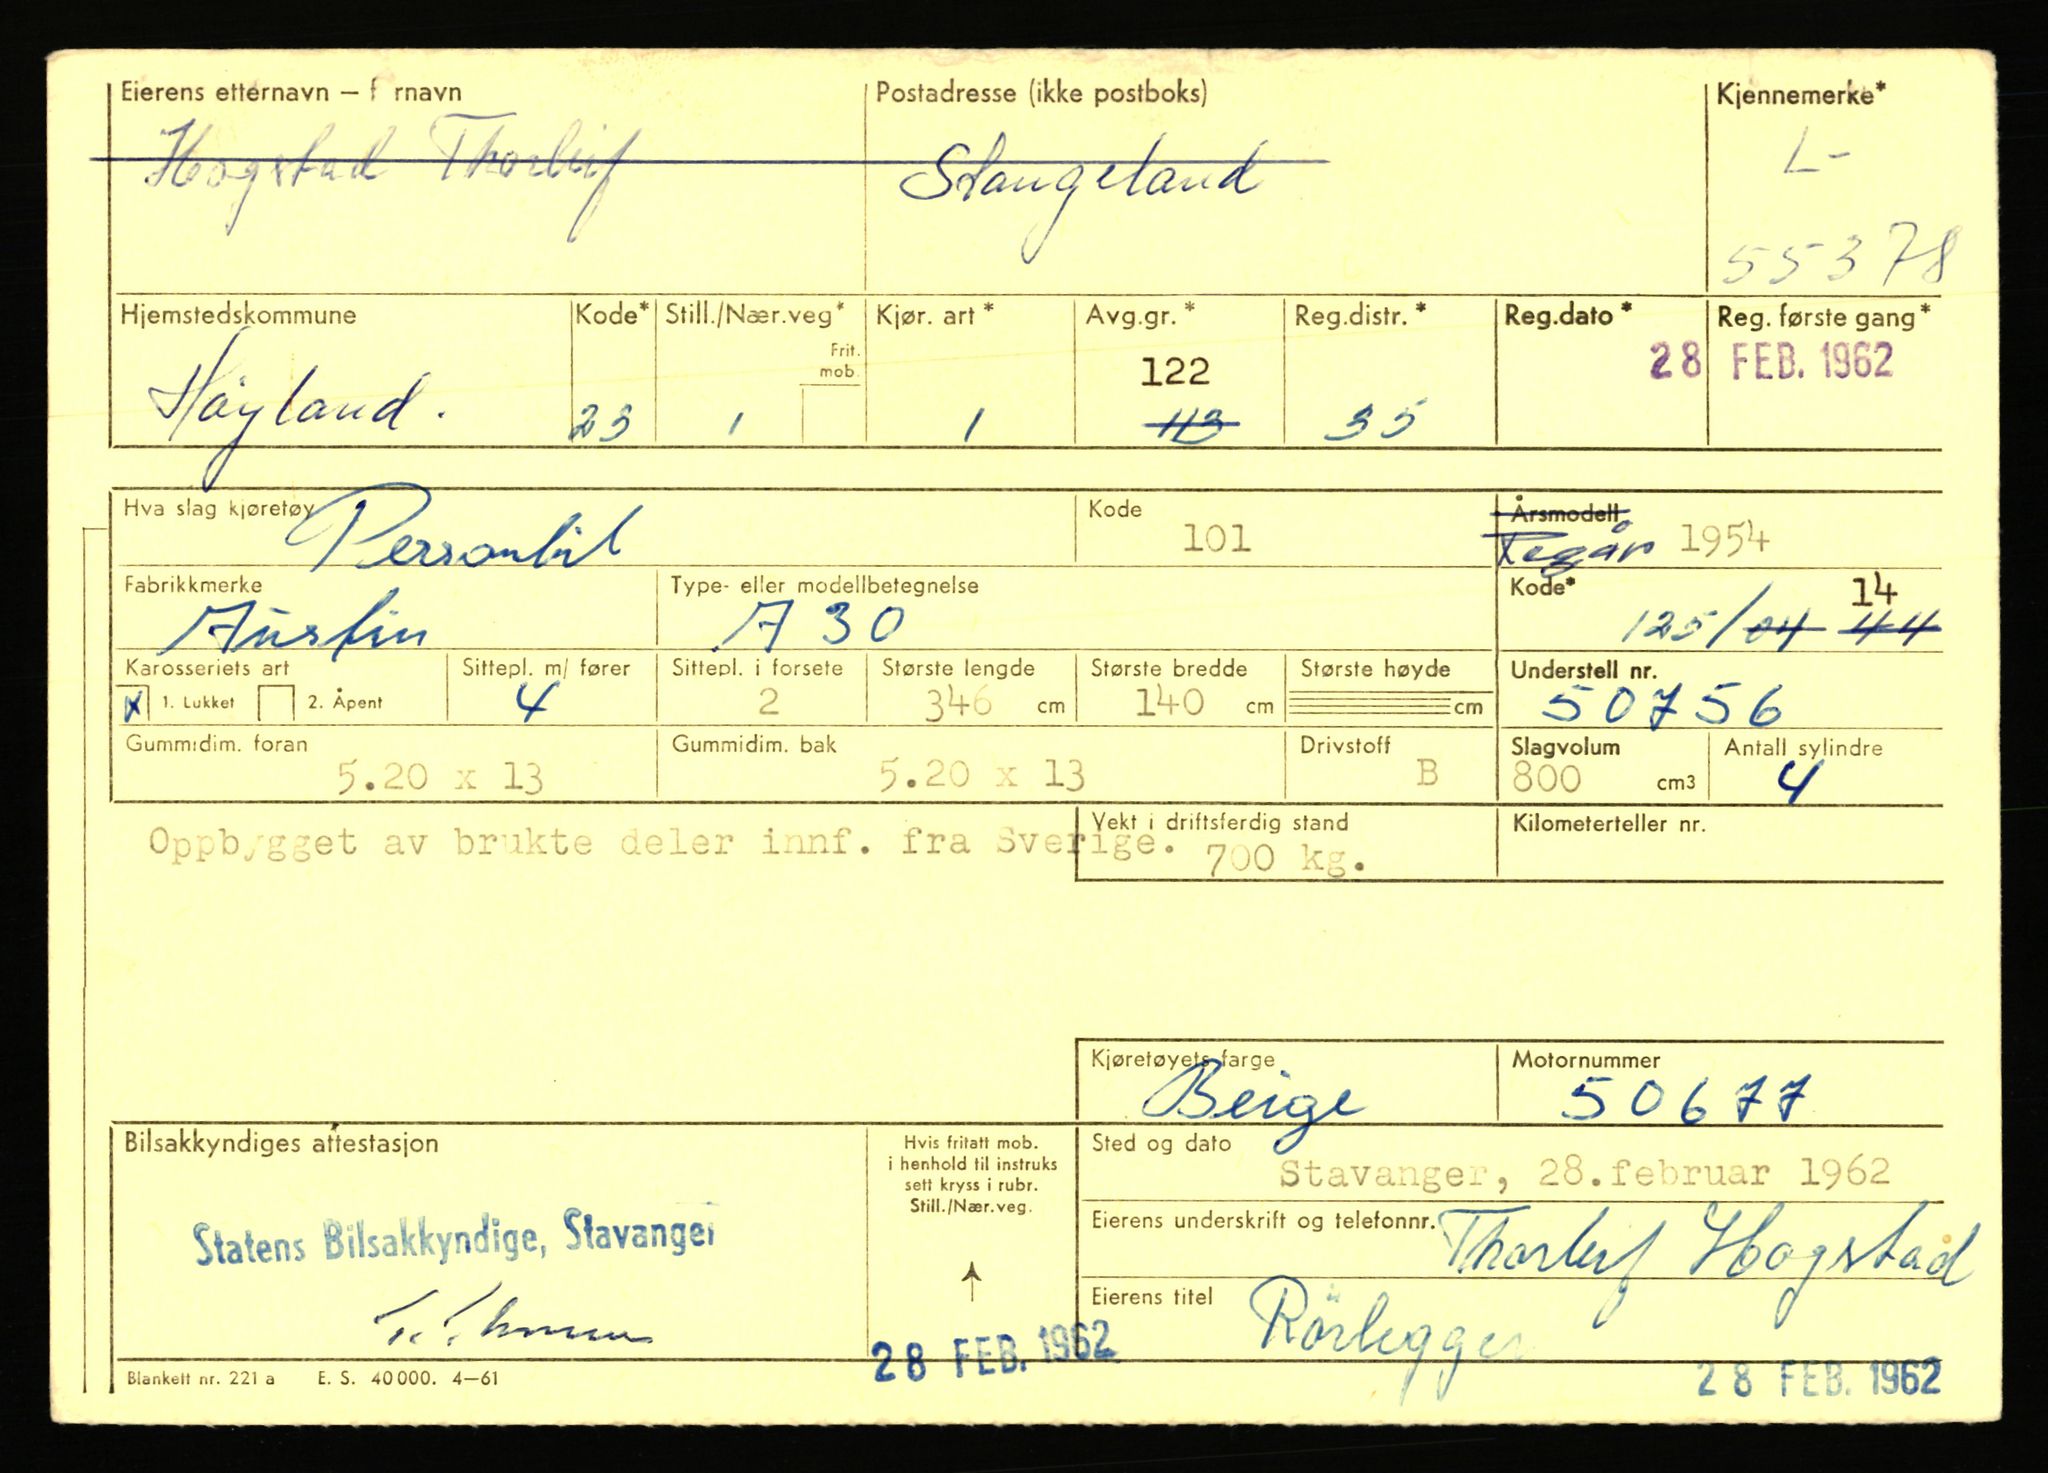 Eierens etternavn — f rnavn Postadresse (ikke postboks) Kjennemerke*
Hogstad Thorleif Stangeland L-
55378
Hjemstedskommune Kode* Still./Nær.veg* Kjør. art* Avg.gr.* Reg.distr.* Reg.dato* Reg. første gang*
Frit. mob.
122 28 FEB. 1962
Høyland. 23 1 1 113 35
Hva slag kjøretøy Personbil Kode 101 Årsmodell Regår 1954
Fabrikkmerke Type- eller modellbetegnelse Kode* 14
Austin A 30 125/04 44
Karosseriets art Sittepl. m/ fører Sittepl. i forsete Største lengde Største bredde Største høyde Understell nr.
x 1. Lukket 2. Åpent 4 2 346 cm 140 cm cm 50756
Gummidim. foran Gummidim. bak Drivstoff Slagvolum Antall sylindre
5.20 x 13 5.20 x 13 B 800 cm3 4
Vekt i driftsferdig stand Kilometerteller nr.
Oppbygget av brukte deler innf. fra Sverige. 700 kg.
Kjøretøyets farge Motornummer
Beige 50677
Bilsakkyndiges attestasjon Hvis fritatt mob. i henhold til instruks sett kryss i rubr. Still./Nær.veg. Sted og dato
Stavanger, 28.februar 1962
Statens Bilsakkyndige, Stavanger Eierens underskrift og telefonnr. Thorleif Hogstad
Eierens titel Rörlegger
28 FEB. 1962 28 FEB. 1962
Blankett nr. 221 a E. S. 40000. 4—61